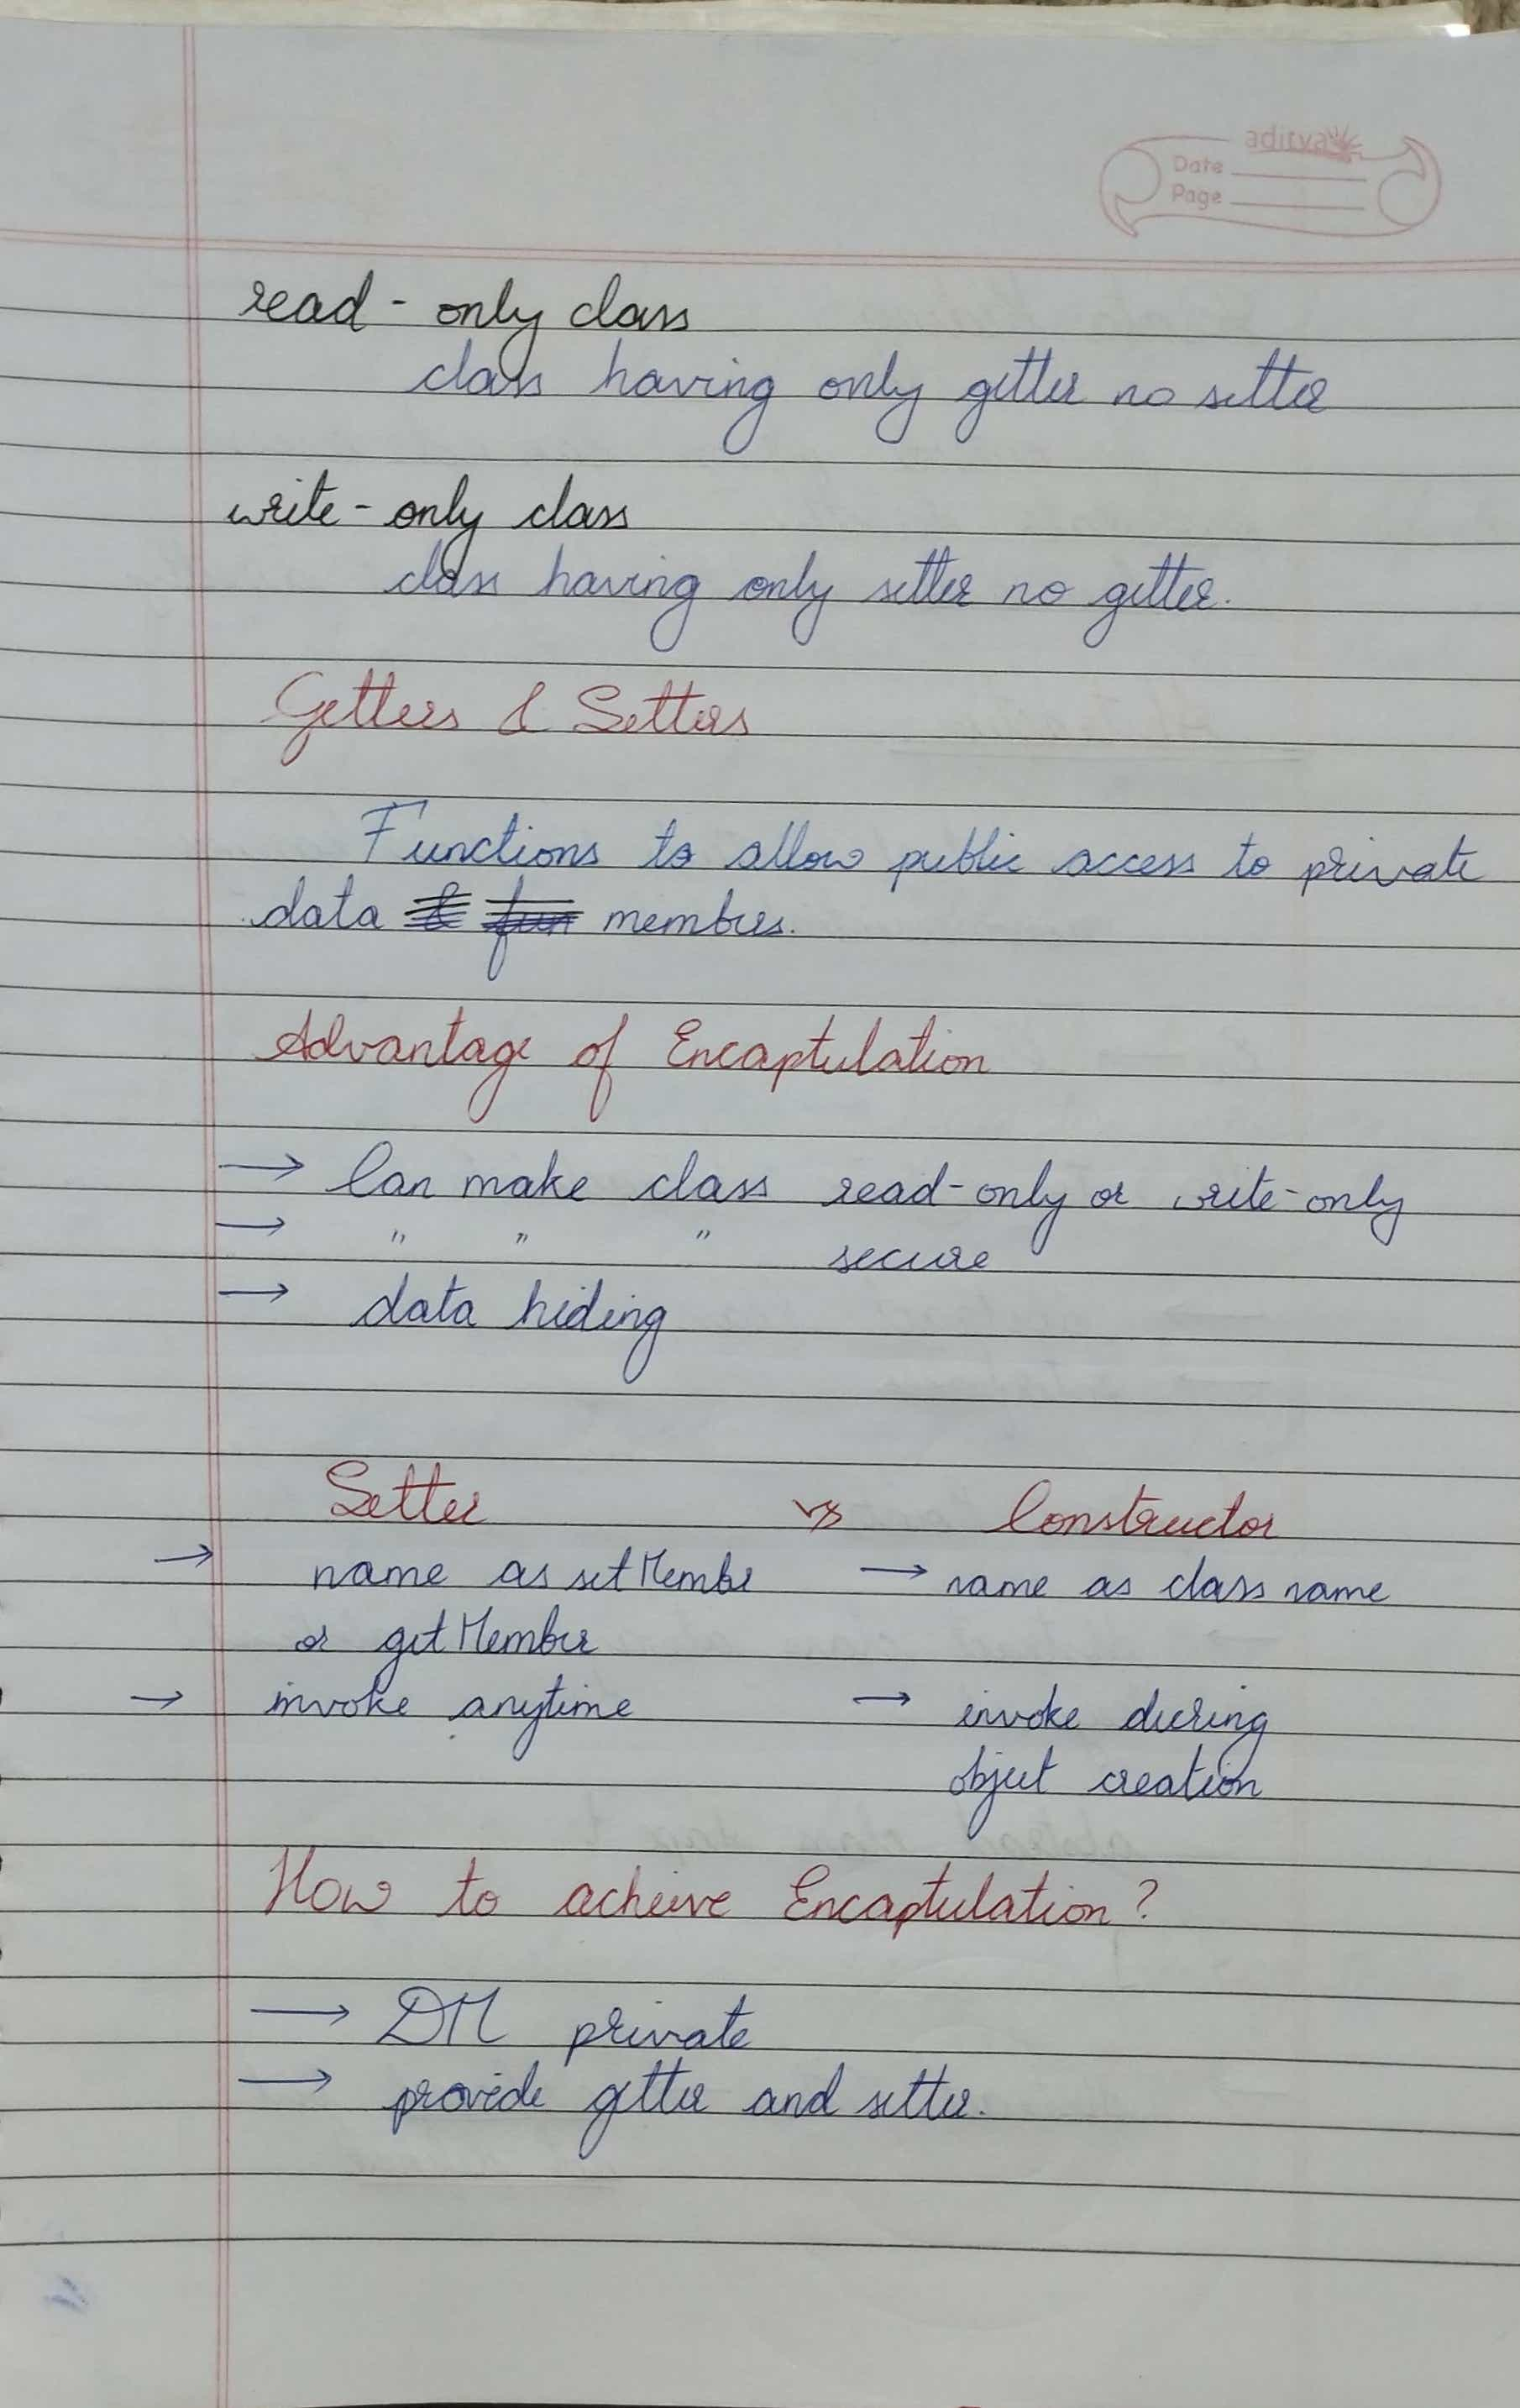 aditya
Date
Page
read - only class
class having only getter no setter
write - only class
class having only setter no getter.
Getters & Setters
Functions to allow public access to private
data & fun members.
Advantage of Encaptulation
→ Can make class read-only or write-only
→ " " " secure
→ data hiding
Setter vs Constructor
→ name as setMember → name as class name
or getMember
→ invoke anytime → invoke during
object creation
How to acheive Encaptulation?
→ DM private
→ provide getter and setter.